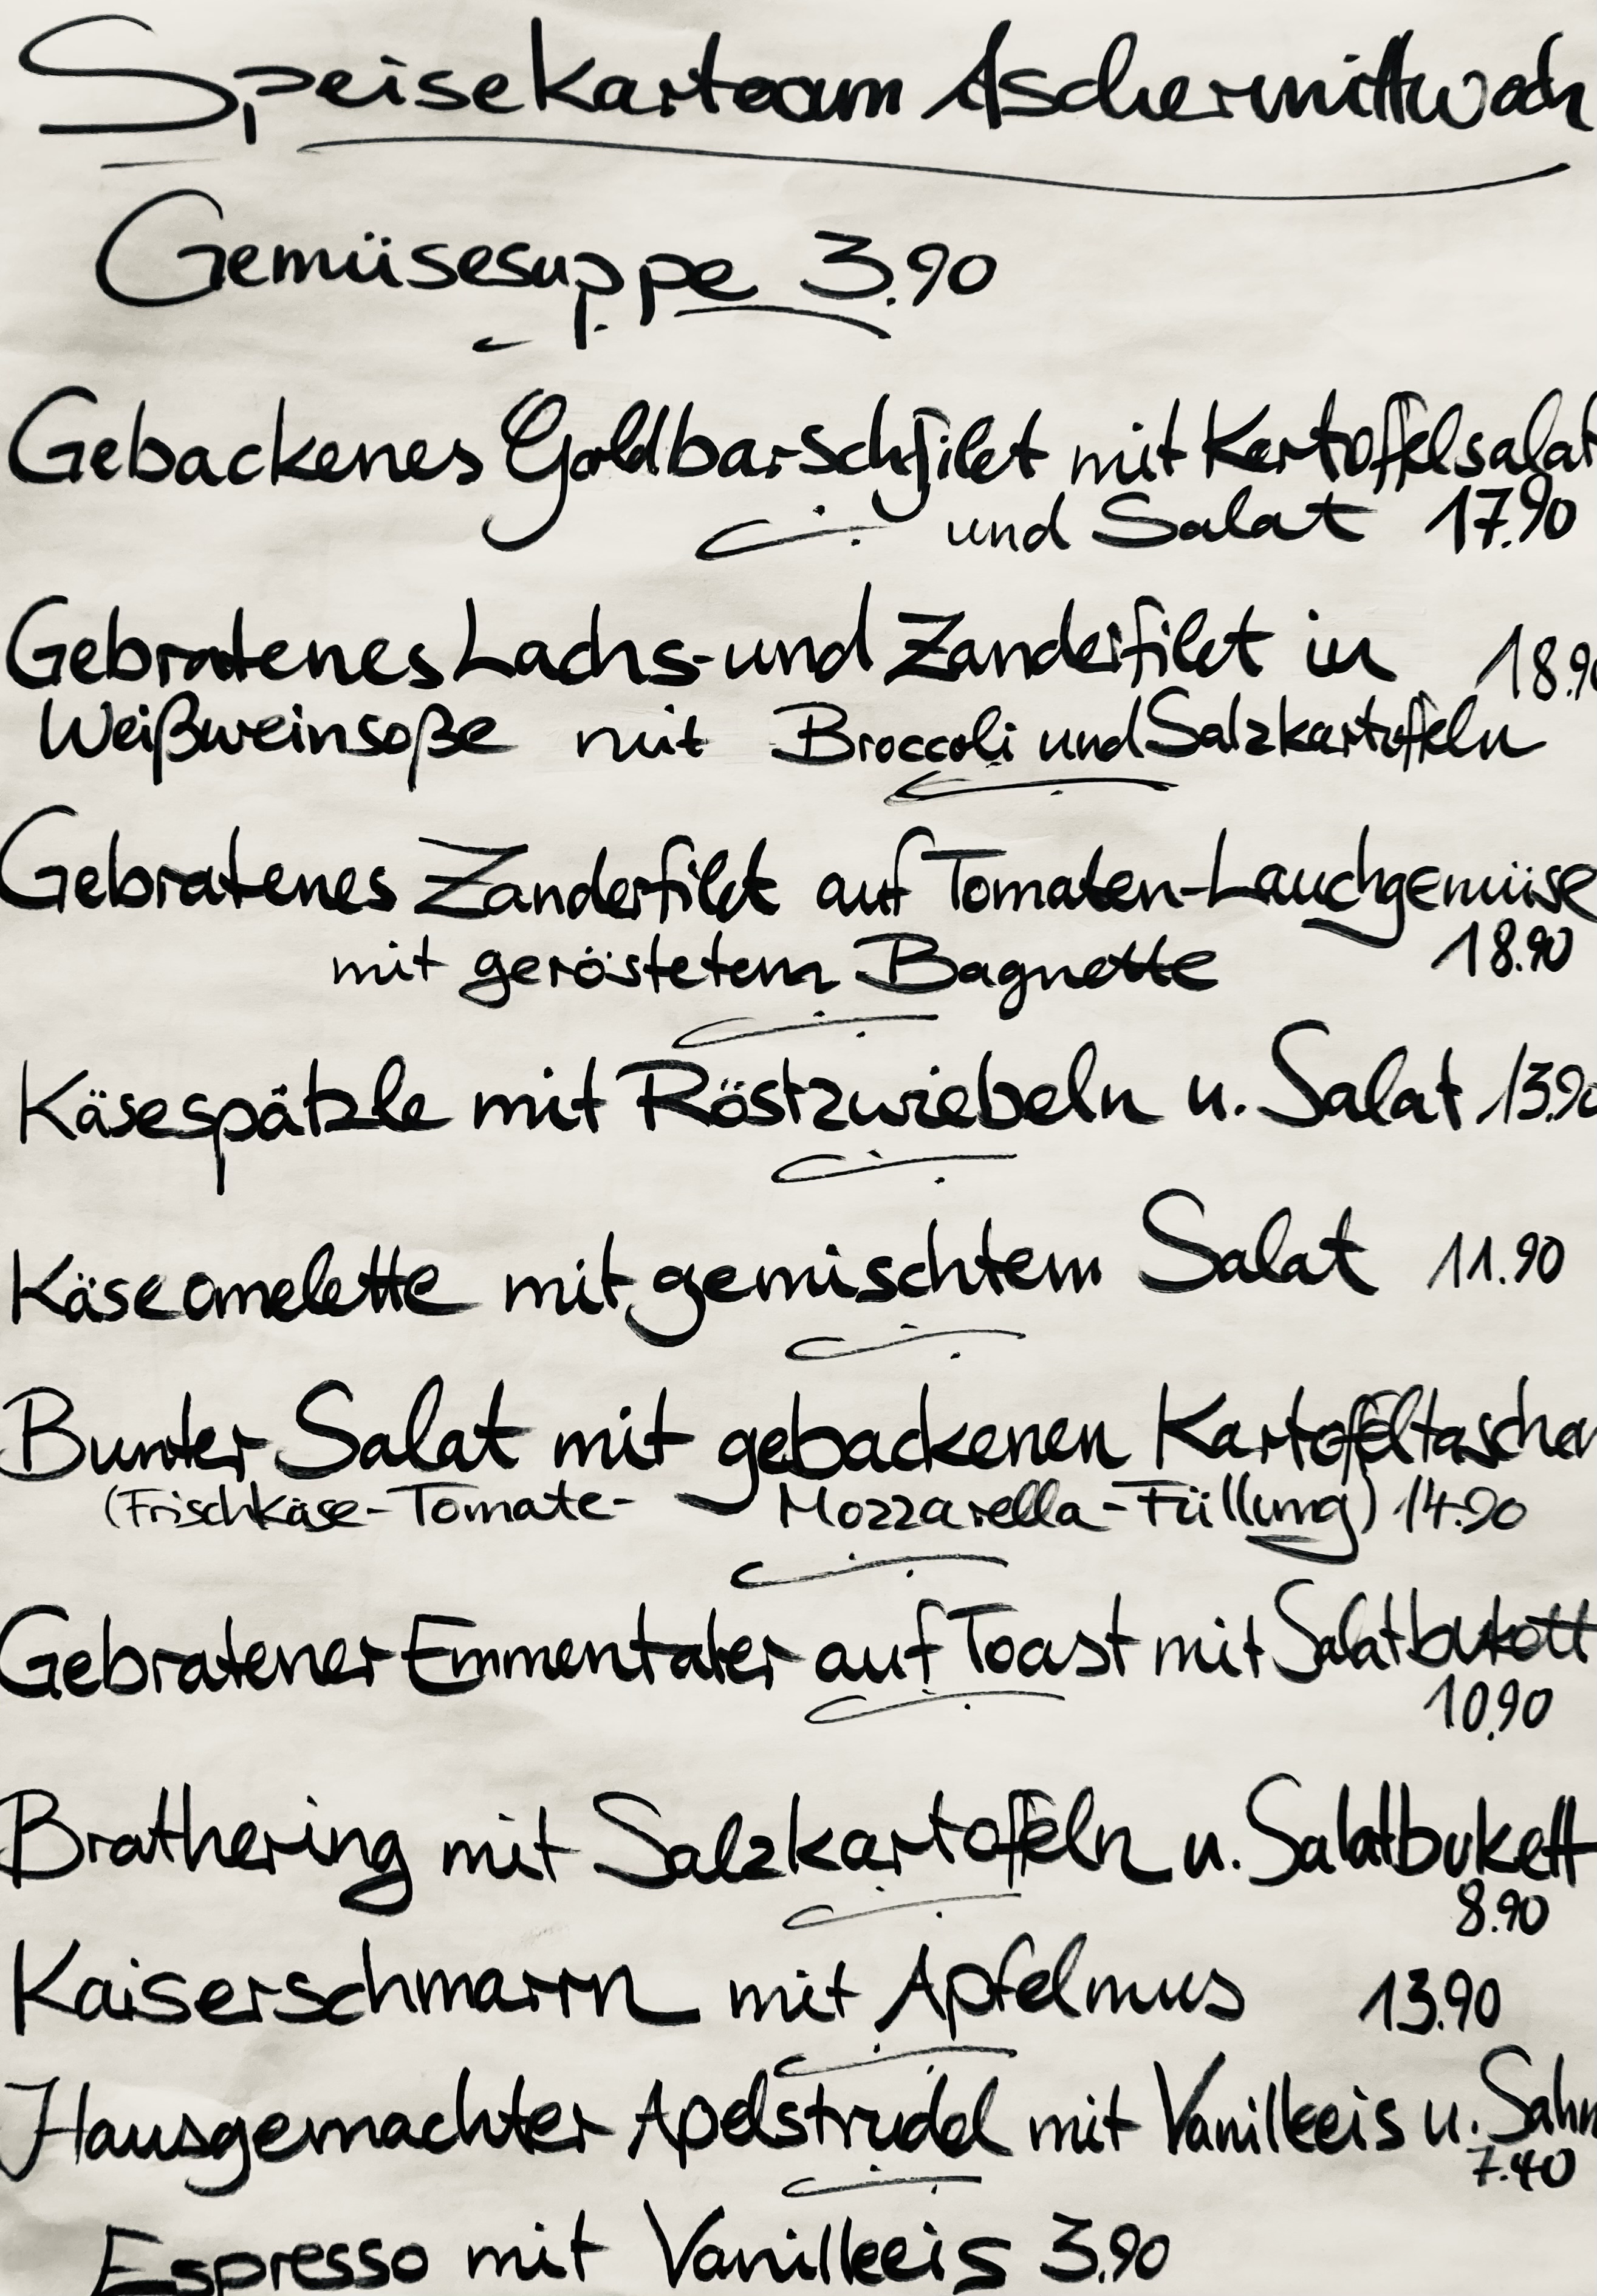 Speisekarte am Aschermittwoch
Gemüsesuppe 3.90
Gebackenes Goldbarschfilet mit Kartoffelsalat
und Salat 17.90
Gebratenes Lachs- und Zanderfilet in 18.90
Weißweinsoße mit Broccoli und Salzkartoffeln
Gebratenes Zanderfilet auf Tomaten-Lauchgemüse
mit geröstetem Bagnette 18.90
Käsespätzle mit Röstzwiebeln u. Salat 13.90
Käseomelette mit gemischtem Salat 11.90
Bunter Salat mit gebackenen Kartoffeltaschen
(Frischkäse-Tomate- Mozzarella-Füllung) 14.90
Gebratener Emmentaler auf Toast mit Salatbukett
10.90
Brathering mit Salzkartoffeln u. Salatbukett
8.90
Kaiserschmarrn mit Apfelmus 13.90
Hausgemachter Apelstrudel mit Vanilleeis u. Sahn
7.40
Espresso mit Vanilleeis 3.90